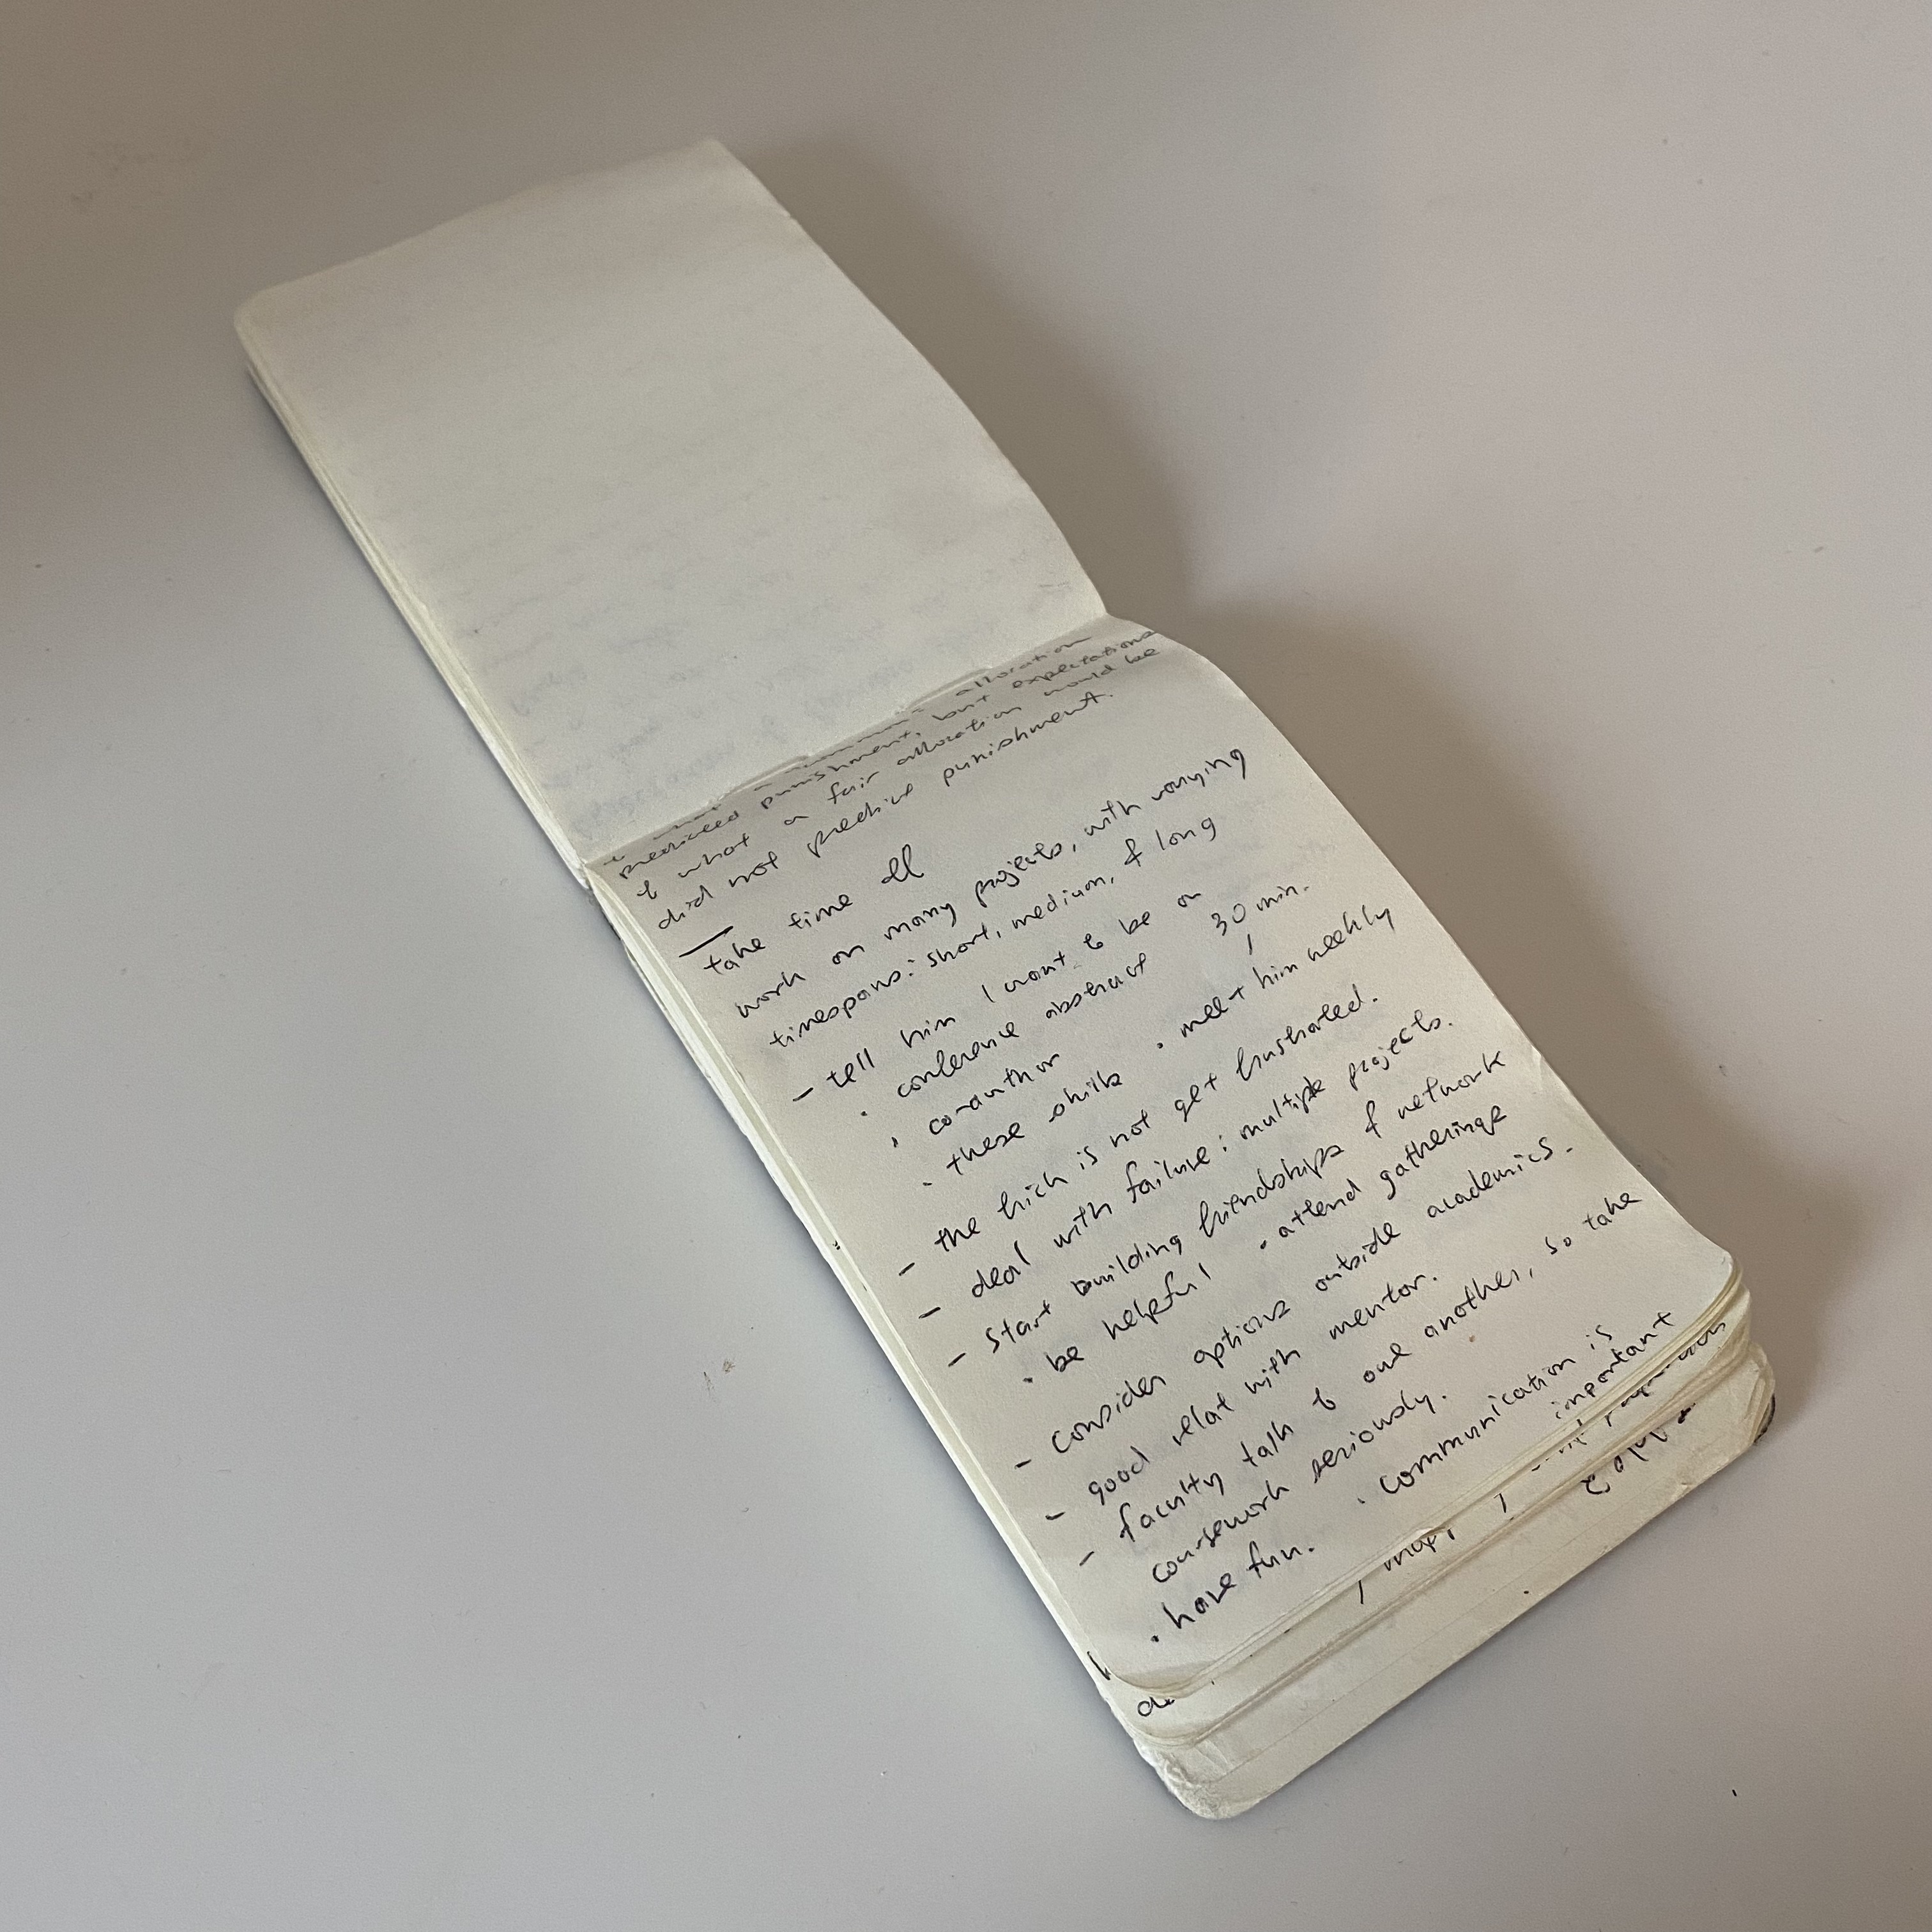 allocation
predicted punishment, but expectations
of what a fair allocation would be
did not predict punishment.
take time off
work on many projects, with varying
timespans: short, medium, & long
- tell him I want to be on
· conference abstract 30 min.
· co-author · meet him weekly
· these skills
- the trick is not get frustrated.
- deal with failure: multiple projects.
- start building friendships & network
· be helpful · attend gatherings
- consider options outside academics.
- good relat with mentor.
- faculty talk to one another, so take
coursework seriously.
· have fun. · communication is
important